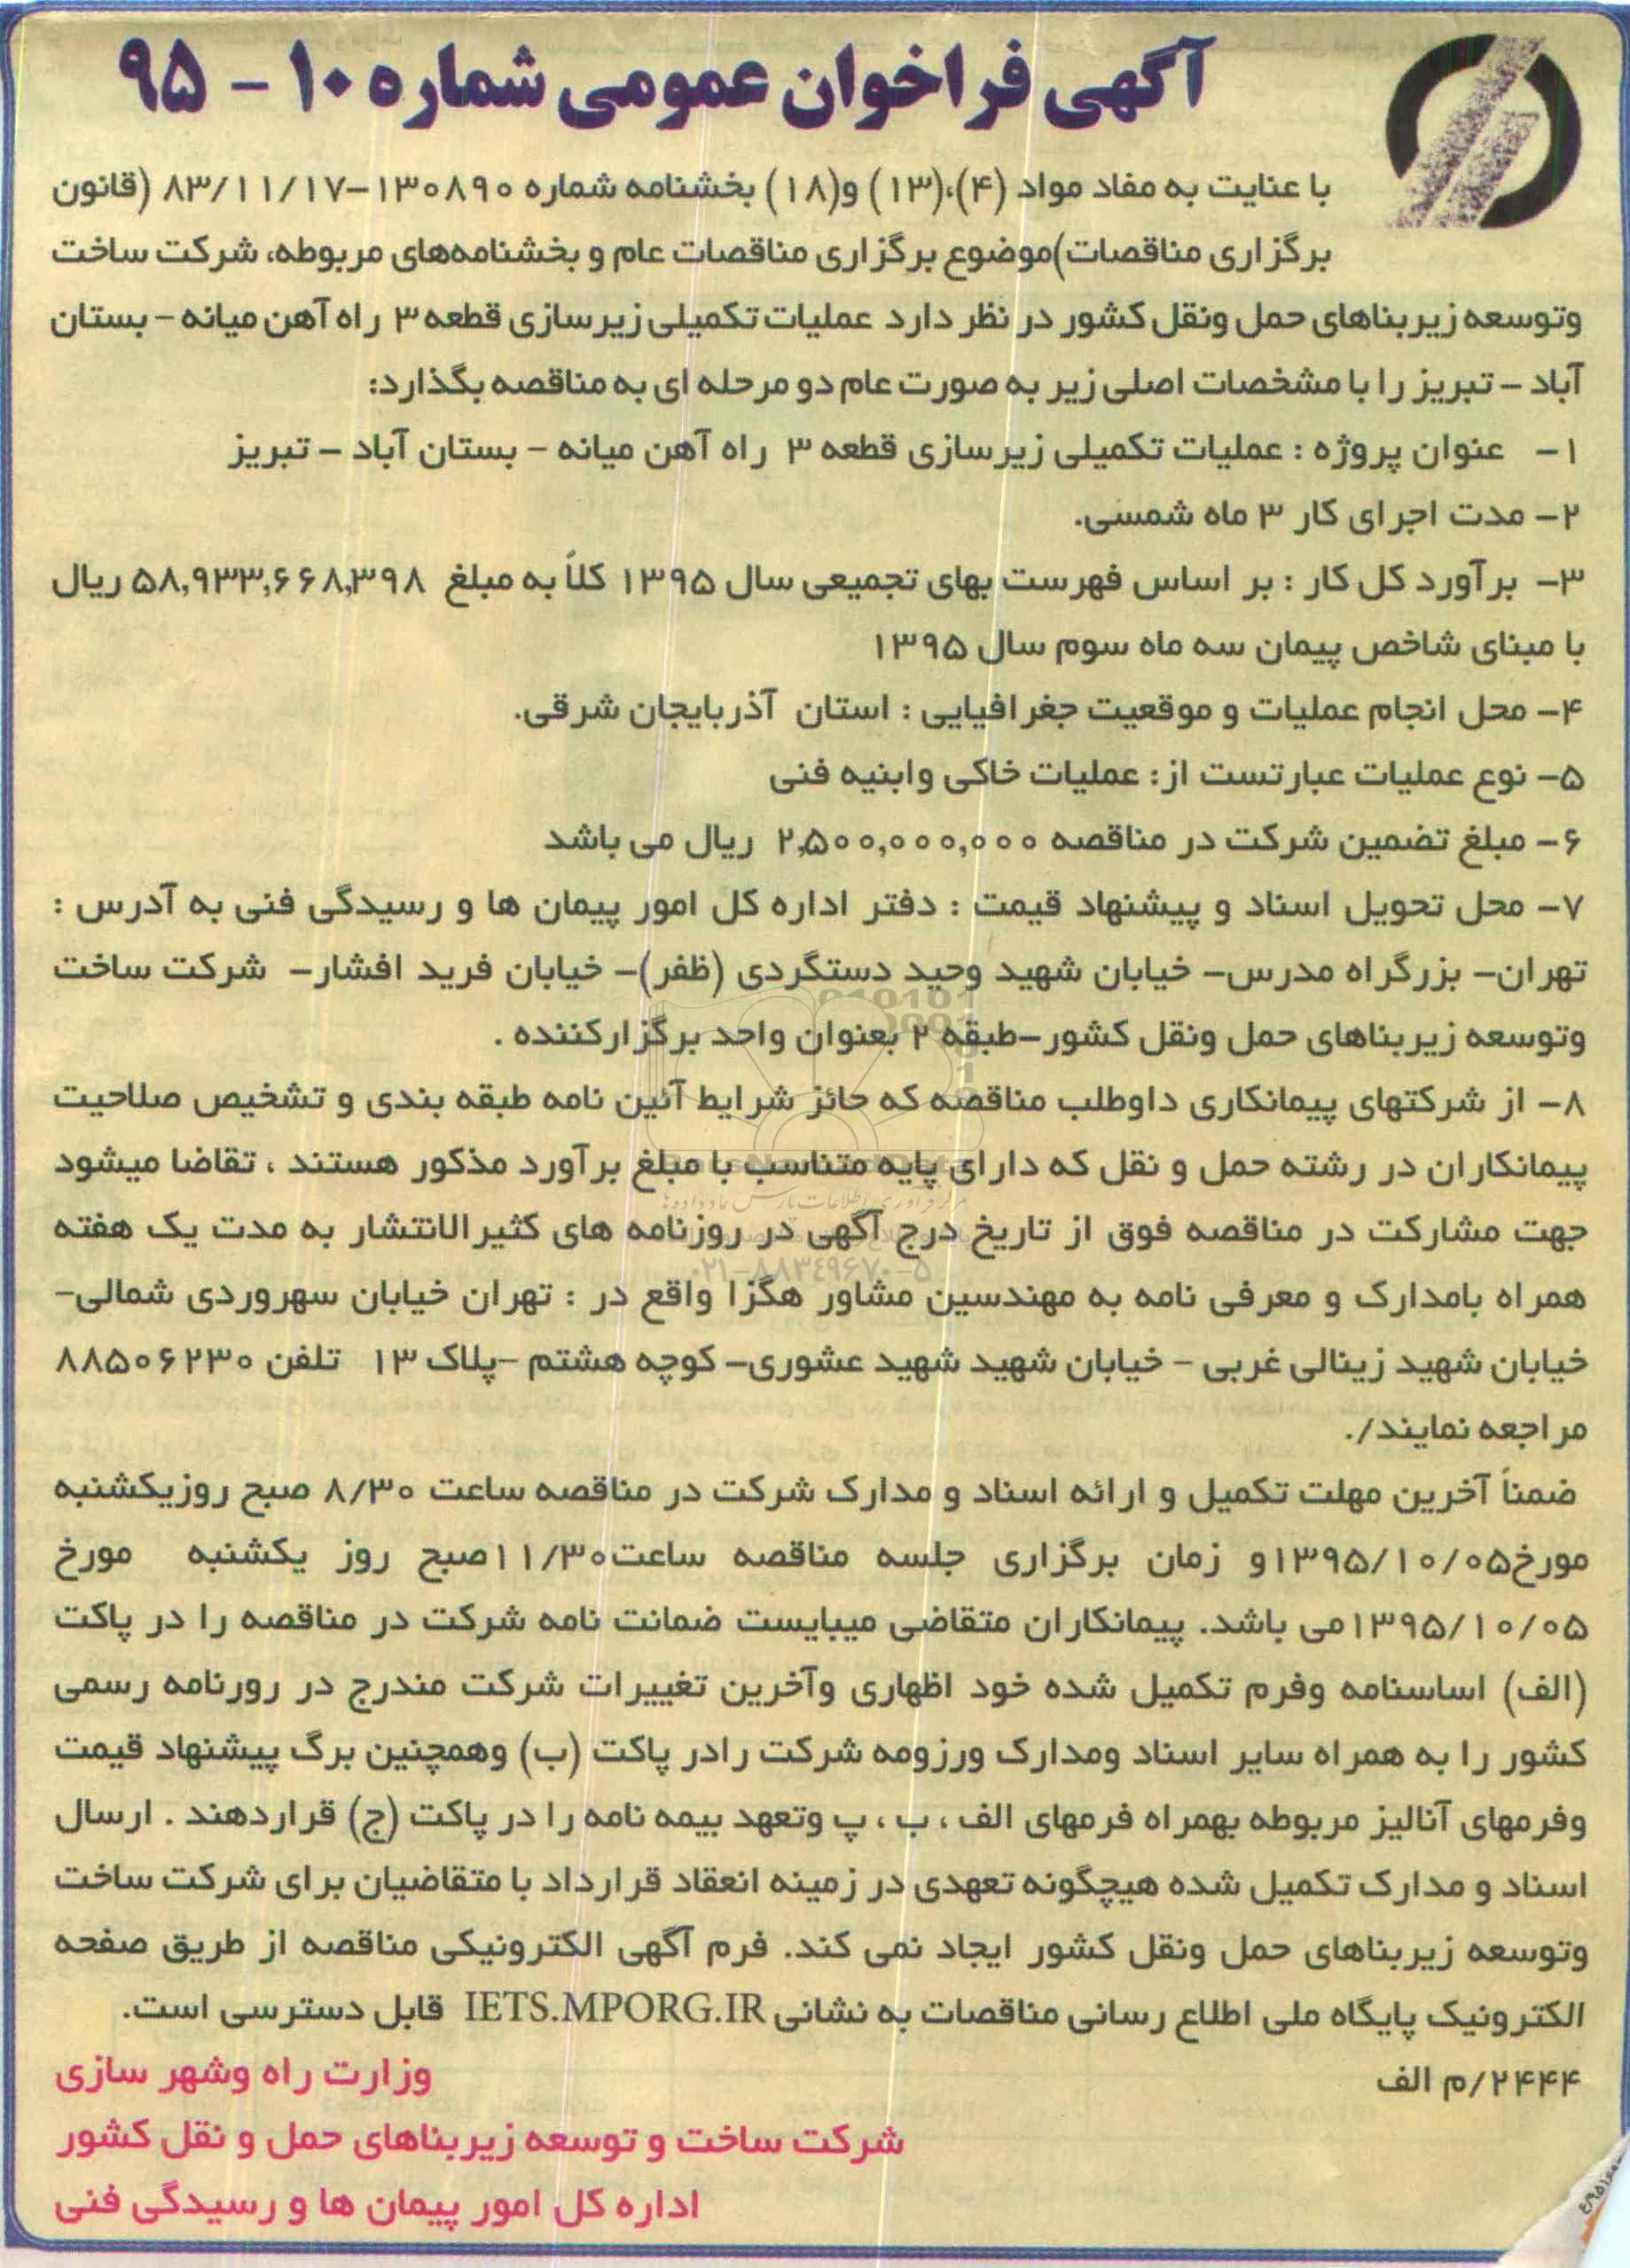 آگهی فراخوان عمومی شماره ۱۰ - ۹۵
با عنایت به مفاد مواد (۴)،(۱۳) و(۱۸) بخشنامه شماره ۱۳۰۸۹۰-۸۳/۱۱/۱۷ (قانون
برگزاری مناقصات)موضوع برگزاری مناقصات عام و بخشنامه‌های مربوطه، شرکت ساخت
وتوسعه زیربناهای حمل ونقل کشور در نظر دارد عملیات تکمیلی زیرسازی قطعه ۳ راه آهن میانه - بستان
آباد - تبریز را با مشخصات اصلی زیر به صورت عام دو مرحله ای به مناقصه بگذارد:
۱- عنوان پروژه : عملیات تکمیلی زیرسازی قطعه ۳ راه آهن میانه - بستان آباد - تبریز
۲- مدت اجرای کار ۳ ماه شمسی.
۳- برآورد کل کار : بر اساس فهرست بهای تجمیعی سال ۱۳۹۵ کلاً به مبلغ ۵۸,۹۳۳,۶۶۸,۳۹۸ ریال
با مبنای شاخص پیمان سه ماه سوم سال ۱۳۹۵
۴- محل انجام عملیات و موقعیت جغرافیایی : استان آذربایجان شرقی.
۵- نوع عملیات عبارتست از: عملیات خاکی وابنیه فنی
۶- مبلغ تضمین شرکت در مناقصه ۲,۵۰۰,۰۰۰,۰۰۰ ریال می باشد
۷- محل تحویل اسناد و پیشنهاد قیمت : دفتر اداره کل امور پیمان ها و رسیدگی فنی به آدرس :
تهران- بزرگراه مدرس- خیابان شهید وحید دستگردی (ظفر)- خیابان فرید افشار- شرکت ساخت
وتوسعه زیربناهای حمل ونقل کشور-طبقه ۲ بعنوان واحد برگزارکننده .
۸- از شرکتهای پیمانکاری داوطلب مناقصه که حائز شرایط آئین نامه طبقه بندی و تشخیص صلاحیت
پیمانکاران در رشته حمل و نقل که دارای پایه متناسب با مبلغ برآورد مذکور هستند ، تقاضا میشود
جهت مشارکت در مناقصه فوق از تاریخ درج آگهی در روزنامه های کثیرالانتشار به مدت یک هفته
همراه بامدارک و معرفی نامه به مهندسین مشاور هگزا واقع در : تهران خیابان سهروردی شمالی-
خیابان شهید زینالی غربی - خیابان شهید شهید عشوری- کوچه هشتم -پلاک ۱۳ تلفن ۸۸۵۰۶۲۳۰
مراجعه نمایند/.
ضمناً آخرین مهلت تکمیل و ارائه اسناد و مدارک شرکت در مناقصه ساعت ۸/۳۰ صبح روزیکشنبه
مورخ۱۳۹۵/۱۰/۰۵و زمان برگزاری جلسه مناقصه ساعت۱۱/۳۰صبح روز یکشنبه مورخ
۱۳۹۵/۱۰/۰۵می باشد. پیمانکاران متقاضی میبایست ضمانت نامه شرکت در مناقصه را در پاکت
(الف) اساسنامه وفرم تکمیل شده خود اظهاری وآخرین تغییرات شرکت مندرج در رورنامه رسمی
کشور را به همراه سایر اسناد ومدارک ورزومه شرکت رادر پاکت (ب) وهمچنین برگ پیشنهاد قیمت
وفرمهای آنالیز مربوطه بهمراه فرمهای الف ، ب ، پ وتعهد بیمه نامه را در پاکت (ج) قراردهند . ارسال
اسناد و مدارک تکمیل شده هیچگونه تعهدی در زمینه انعقاد قرارداد با متقاضیان برای شرکت ساخت
وتوسعه زیربناهای حمل ونقل کشور ایجاد نمی کند. فرم آگهی الکترونیکی مناقصه از طریق صفحه
الکترونیک پایگاه ملی اطلاع رسانی مناقصات به نشانی IETS.MPORG.IR قابل دسترسی است.
۲۴۴۴/م الف
وزارت راه وشهر سازی
شرکت ساخت و توسعه زیربناهای حمل و نقل کشور
اداره کل امور پیمان ها و رسیدگی فنی
۰۲۱-۸۸۳۴۹۶۷۰-۵